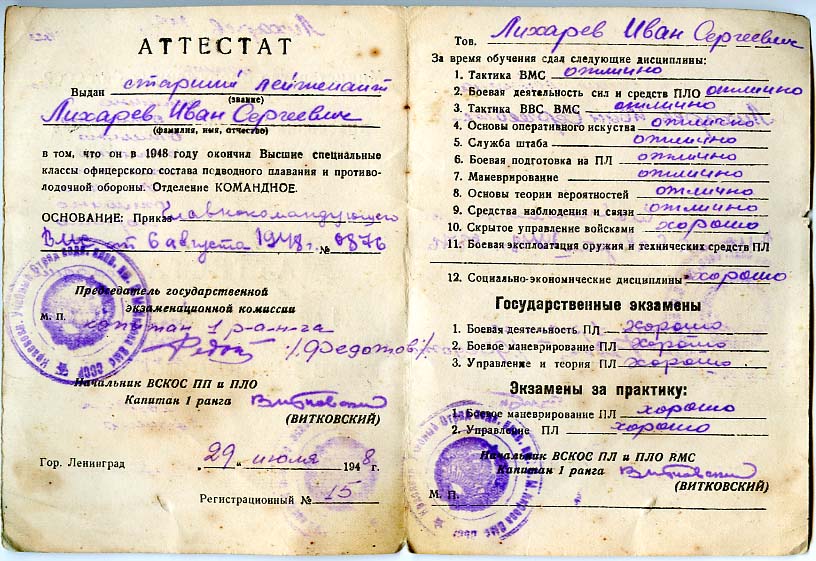 АТТЕСТАТ
Выдан старший лейтенант
(звание)
Лихарев Иван Сергеевич
(фамилия, имя, отчество)
в том, что он в 1948 году окончил Высшие специальные
классы офицерского состава подводного плавания и противо-
лодочной обороны. Отделение КОМАНДНОЕ.
ОСНОВАНИЕ: Приказ Главнокомандующего
ВМС от 6 августа 1948 г. № 0876
Председатель государственной
экзаменационной комиссии
М. П.
капитан 1 ранга
/Федотов/
Начальник ВСКОС ПП и ПЛО
Капитан 1 ранга Витковский
(ВИТКОВСКИЙ)
Гор. Ленинград „29" июля 1948 г.
Регистрационный № 15
Тов. Лихарев Иван Сергеевич
За время обучения сдал следующие дисциплины:
1. Тактика ВМС отлично
2. Боевая деятельность сил и средств ПЛО отлично
3. Тактика ВВС ВМС отлично
4. Основы оперативного искуства отлично
5. Служба штаба отлично
6. Боевая подготовка на ПЛ отлично
7. Маневрирование отлично
8. Основы теории вероятностей отлично
9. Средства наблюдения и связи отлично
10. Скрытое управление войсками хорошо
11. Боевая эксплоатация оружия и технических средств ПЛ
12. Социально-экономические дисциплины хорошо
Государственные экзамены
1. Боевая деятельность ПЛ хорошо
2. Боевое маневрирование ПЛ хорошо
3. Управление и теория ПЛ хорошо
Экзамены за практику:
1. Боевое маневрирование ПЛ хорошо
2. Управление ПЛ хорошо
Начальник ВСКОС ПЛ и ПЛО ВМС
Капитан 1 ранга Витковский
(ВИТКОВСКИЙ)
М. П.